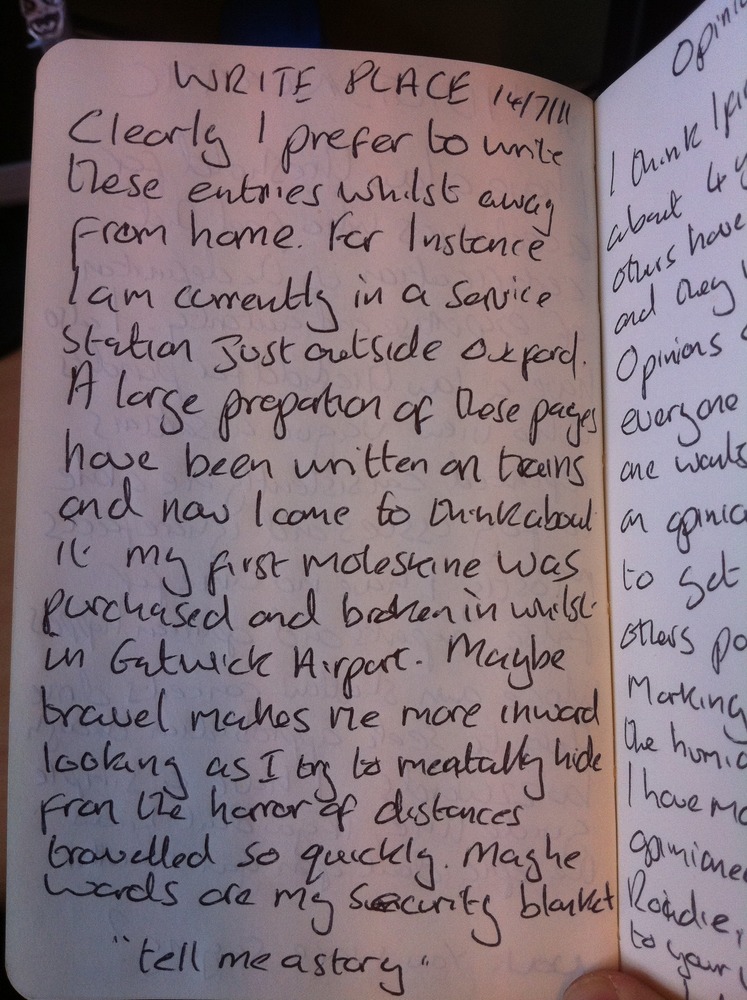 WRITE PLACE 14/7/11
Clearly I prefer to write
these entries whilst away
from home. For Instance
I am currently in a Service
Station Just outside Oxford.
A large preportion of these pages
have been written on trains
and now I come to think about
it my first moleskine was
purchased and broken in whilst
in Gatwick Airport. Maybe
travel makes me more inward
looking as I try to meatally hide
from the horror of distances
travelled so quickly. Maybe
words are my security blanket
"tell me a story"
I think
about 4
others have
and they
Opinions
everyone
one wants
an
to get
others
Marking
the
I have
Roadie,
to your